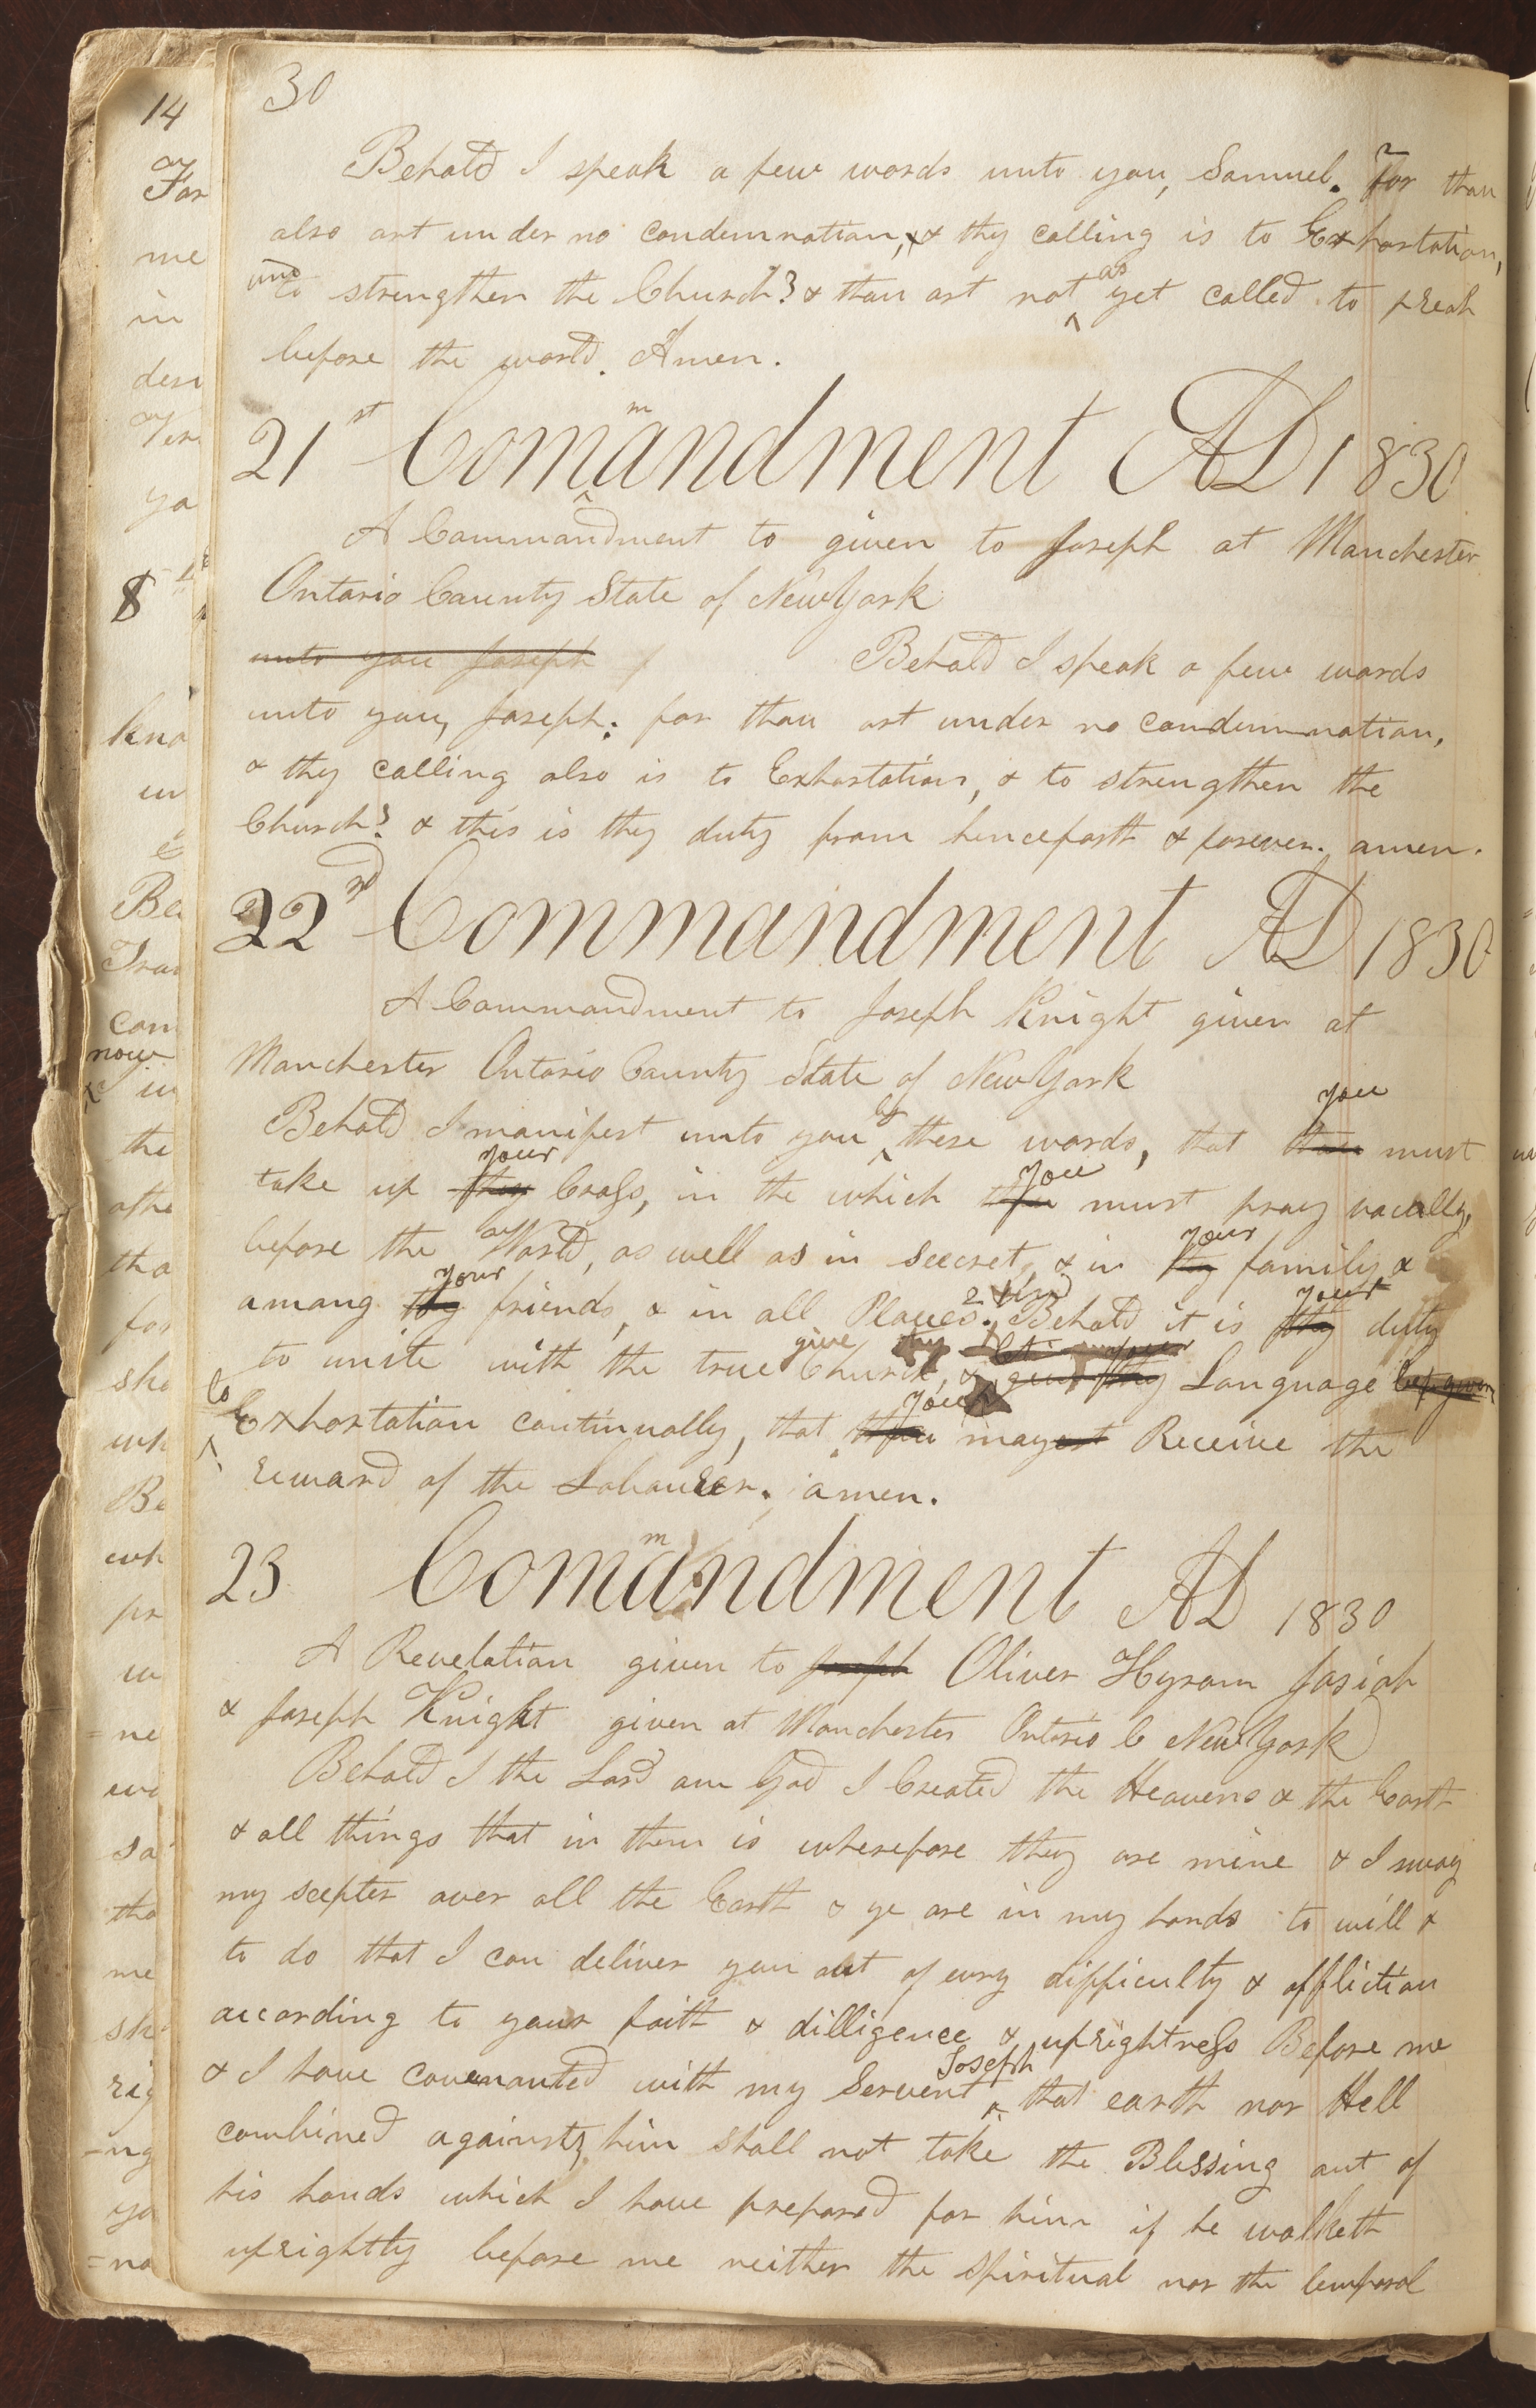 30
Behold I speak a few words unto you, Samuel. For thou
also art under no condemnation, & thy calling is to Exhortation,
and to strengthen the Church? & thou art not as yet called to preach
before the world. Amen.
21st Commandment AD 1830
A Commandment to given to Joseph at Manchester
Ontario County State of New York
unto you Joseph Behold I speak a few words
unto you, Joseph; for thou art under no condemnation,
& thy calling also is to Exhortation, & to strengthen the
Church? & this is thy duty from henceforth & forever. amen.
22nd Commandment AD 1830
A Commandment to Joseph Knight given at
Manchester Ontario County State of New York
Behold I manifest unto you by these words, that thou you must
take up thy your Cross, in the which thou you must pray vocally,
before the World, as well as in seecret, & in thy your family &
among thy your friends, & in all Places. Behold it is thy your duty
to unite with the true Church, & give thy your Language
to Exhortation continually, that thou you mayest Receive the
reward of the Labourer. amen.
23 Commandment AD 1830
A Revelation given to Joseph Oliver Hyram Josiah
& Joseph Knight given at Manchester Ontario C New York
Behold I the Lord am God I Created the Heavens & the Earth
& all things that in them is wherefore they are mine & I sway
my scepter over all the Earth & ye are in my hands to will &
to do that I can deliver you out of evry difficulty & affliction
according to your faith & dilligence & uprightness Before me
& I have covenanted with my Servent Joseph that earth nor Hell
combined against him shall not take the Blessing out of
his hands which I have prepared for him if he walketh
uprightly before me neither the spiritual nor the temporal
14
For
me
in
desi
Ver
ya
8
kno
un
Be
Tra
com
now
in
the
othe
tha
for
sho
wh
Be
wh
pr
w
=ne
evi
sa
tho
me
sh
rig
-ng
yo
=no